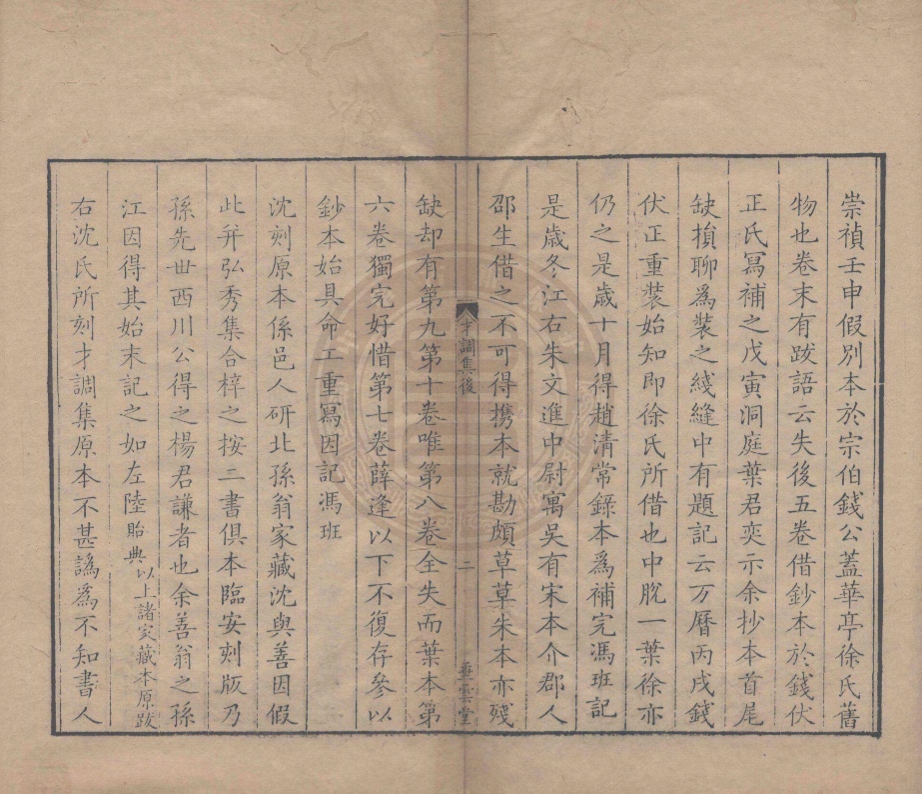 崇禎壬申假別本於宗伯錢公蓋華亭徐氏舊
物也卷末有跋語云失後五卷借鈔本於錢伏
正氏冩補之戊寅洞庭葉君奕示余抄本首尾
缺損聊爲裝之綫縫中有題記云万曆丙戌錢
伏正重裝始知即徐氏所借也中脫一葉徐亦
仍之是歲十月得趙清常錄本爲補完馮班記
是歲冬江右朱文進中尉寓吳有宋本介郡人
邵生借之不可得携本就勘頗草草朱本亦殘
才調集後
二
垂雲堂
缺却有第九第十卷唯第八卷全失而葉本第
六卷獨完好惜第七卷薛逢以下不復存參以
鈔本始具命工重冩因記馮班
沈刻原本係邑人研北孫翁家藏沈與善因假
此并弘秀集合梓之按二書俱本臨安刻版乃
孫先世西川公得之楊君謙者也余善翁之孫
江因得其始末記之如左陸貽典以上諸家藏本原跋
右沈氏所刻才調集原本不甚譌爲不知書人